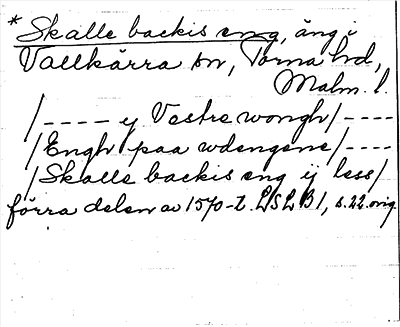 * Skalle backis eng, äng i
Vallkärra sn, Torna hd,
Malm. l.
/---- y Vestre wongh/----
/Engh paa wdengene/----
/Skalle backis eng ij less/
förra delen av 1570-t. LSLB 1, s. 22. orig.